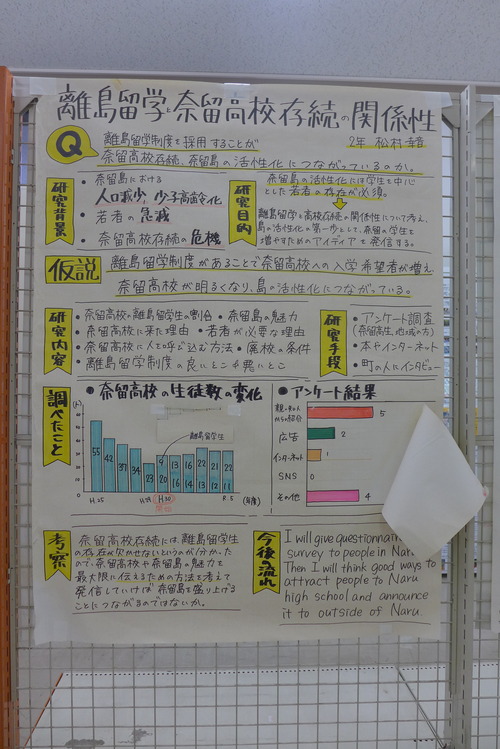 離島留学と奈留高校存続の関係性
2年 松村
Q 離島留学制度を採用することが
奈留高校存続、奈留島の活性化につながっているのか。
研究背景
・奈留島における
人口減少、少子高齢化
・若者の急減
・奈留高校存続の危機
研究目的
奈留島の活性化には学生を中心
とした若者の存在が必須。
離島留学と高校存続の関係性について考え、
島の活性化の第一歩として、奈留の学生を
増やすためのアイディアを発信する。
仮説 離島留学制度があることで奈留高校への入学希望者が増え、
奈留高校が明るくなり、島の活性化につながっている。
研究内容
・奈留高校の離島留学生の割合 ・奈留島の魅力
・奈留高校に来た理由 ・若者が必要な理由
・奈留高校に人を呼び込む方法 ・廃校の条件
・離島留学制度の良いところ悪いところ
研究手段
・アンケート調査
(奈留高生、地域の方)
・本やインターネット
・町の人にインタビュー
調べたこと
・奈留高校の生徒数の変化
(人)
離島留学生
55 42 37 34 23 9 13 16 22 22
20 16 13 12 11
H.25 H.29 H.30 R.5 (年度)
・アンケート結果
親・知人
からの紹介 5
広告 2
インターネット 1
SNS 0
その他 4
考察
奈留高校存続には、離島留学生
の存在が欠かせないというのが分かった
ので、奈留高校や奈留島の魅力を
最大限に伝えるための方法を考えて
発信していけば奈留島を盛り上げる
ことにつながるのではないか。
今後の流れ
I will give questionnai
survey to people in Naru
Then I will think good ways to
attract people to Naru
high school and announce
it to outside of Naru